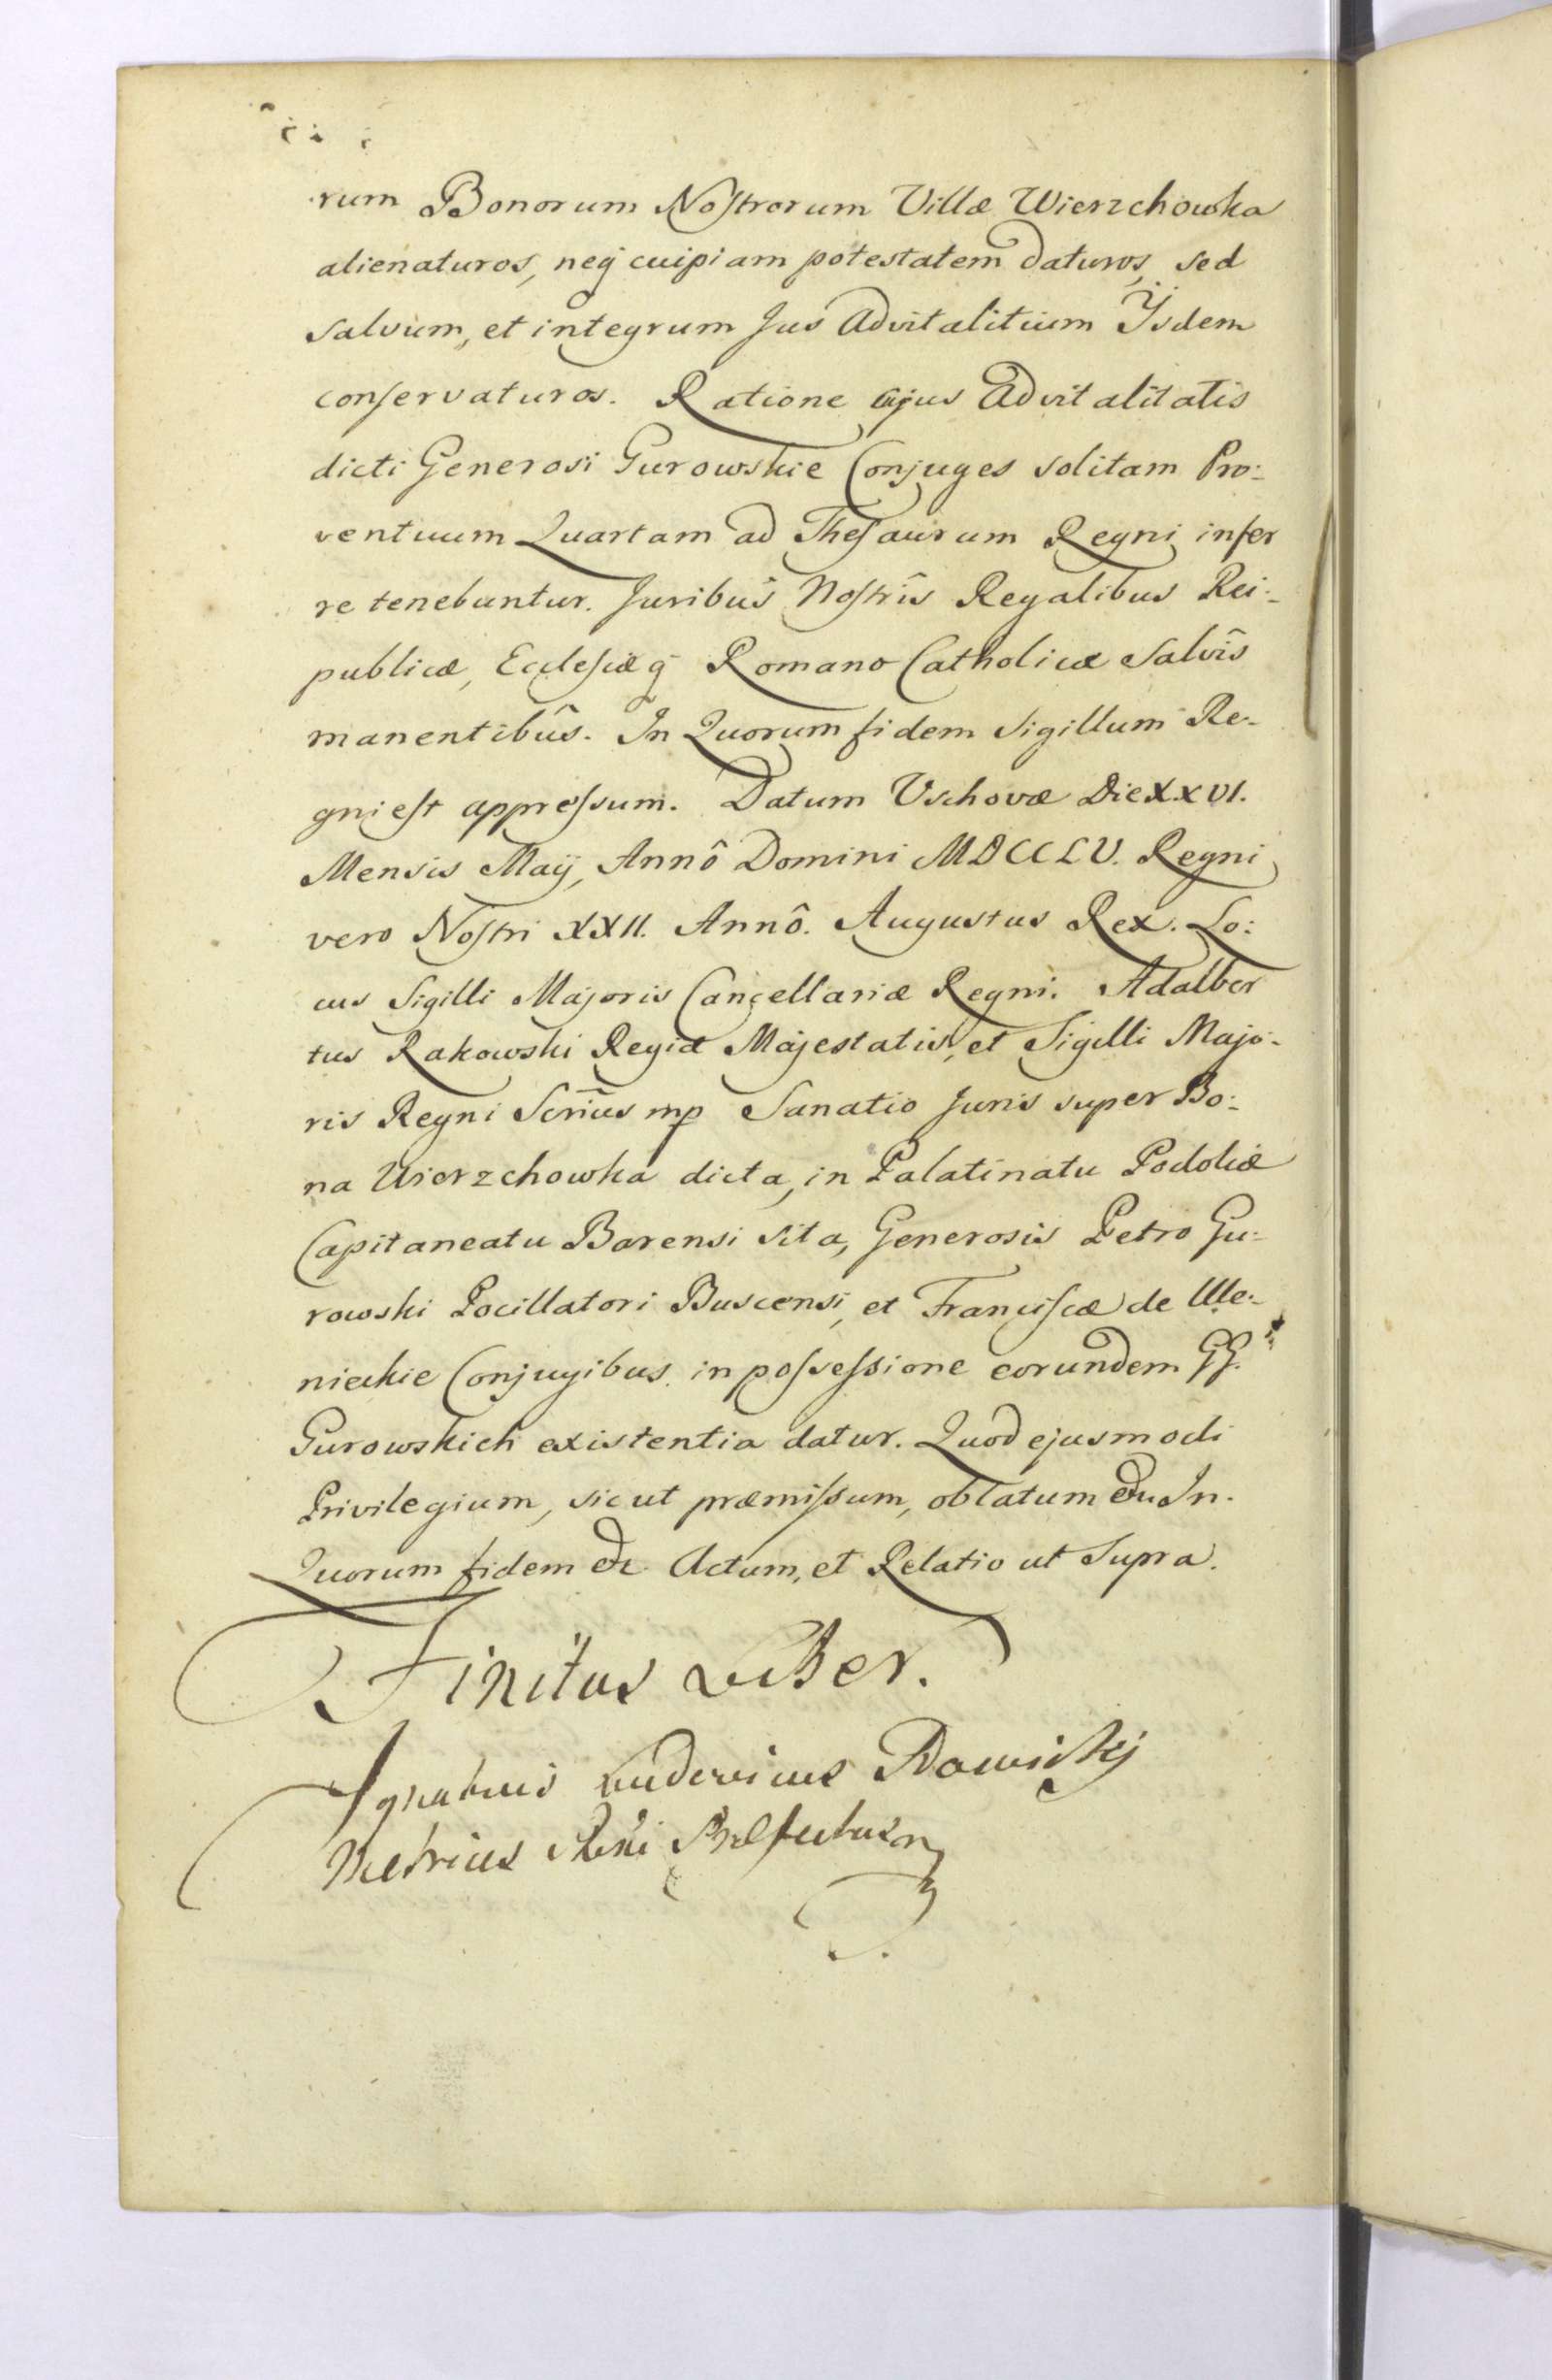 rum Bonorum Nostrorum Villæ Wierzchowka
alienaturos, neq cuipiam potestatem daturos, sed
salvum, et integrum Jus Advitalitium Ysdem
conservaturos. Ratione cujus Advitalitatis
dicti Generosi Gurowskie Conjuges solitam Pro:
ventuum Quartam ad Thesaurum Regni infer
re tenebuntur. Juribus Nostris Regalibus Rei:
publicæ, Ecclesiæq Romano Catholicæ salvîs
manentibûs. In Quorum fidem Sigillum Re:
gni est appressum. Datum Vschovæ Die XXVI.
Mensis Maÿ, Annô Domini MDCCLV. Regni
vero Nostri XXII. Annô. Augustus Rex. Lo:
cus Sigilli Majoris Cancellariæ Regni. Adalber
tus Rakowski Regiæ Majestatis, et Sigilli Majo:
ris Regni Scrius mp Sanatio Juris super Bo:
na Wierzchowka dicta, in Palatinatu Podoliæ
Capitaneatu Barensi sita, Generosis Petro Gu:
rowski Pocillatori Buscensi, et Franciscæ de
nieckie Conjugibus in possessione eorundem GG.
Gurowskich existentia datur. Quod ejusmodi
Privilegium, sicut præmissum, oblatum In.
Quorum fidem &c. Actum, et Relatio ut Supra.
Finitus Liber.
Ignatius Ludovicus
Metrices Præfectus